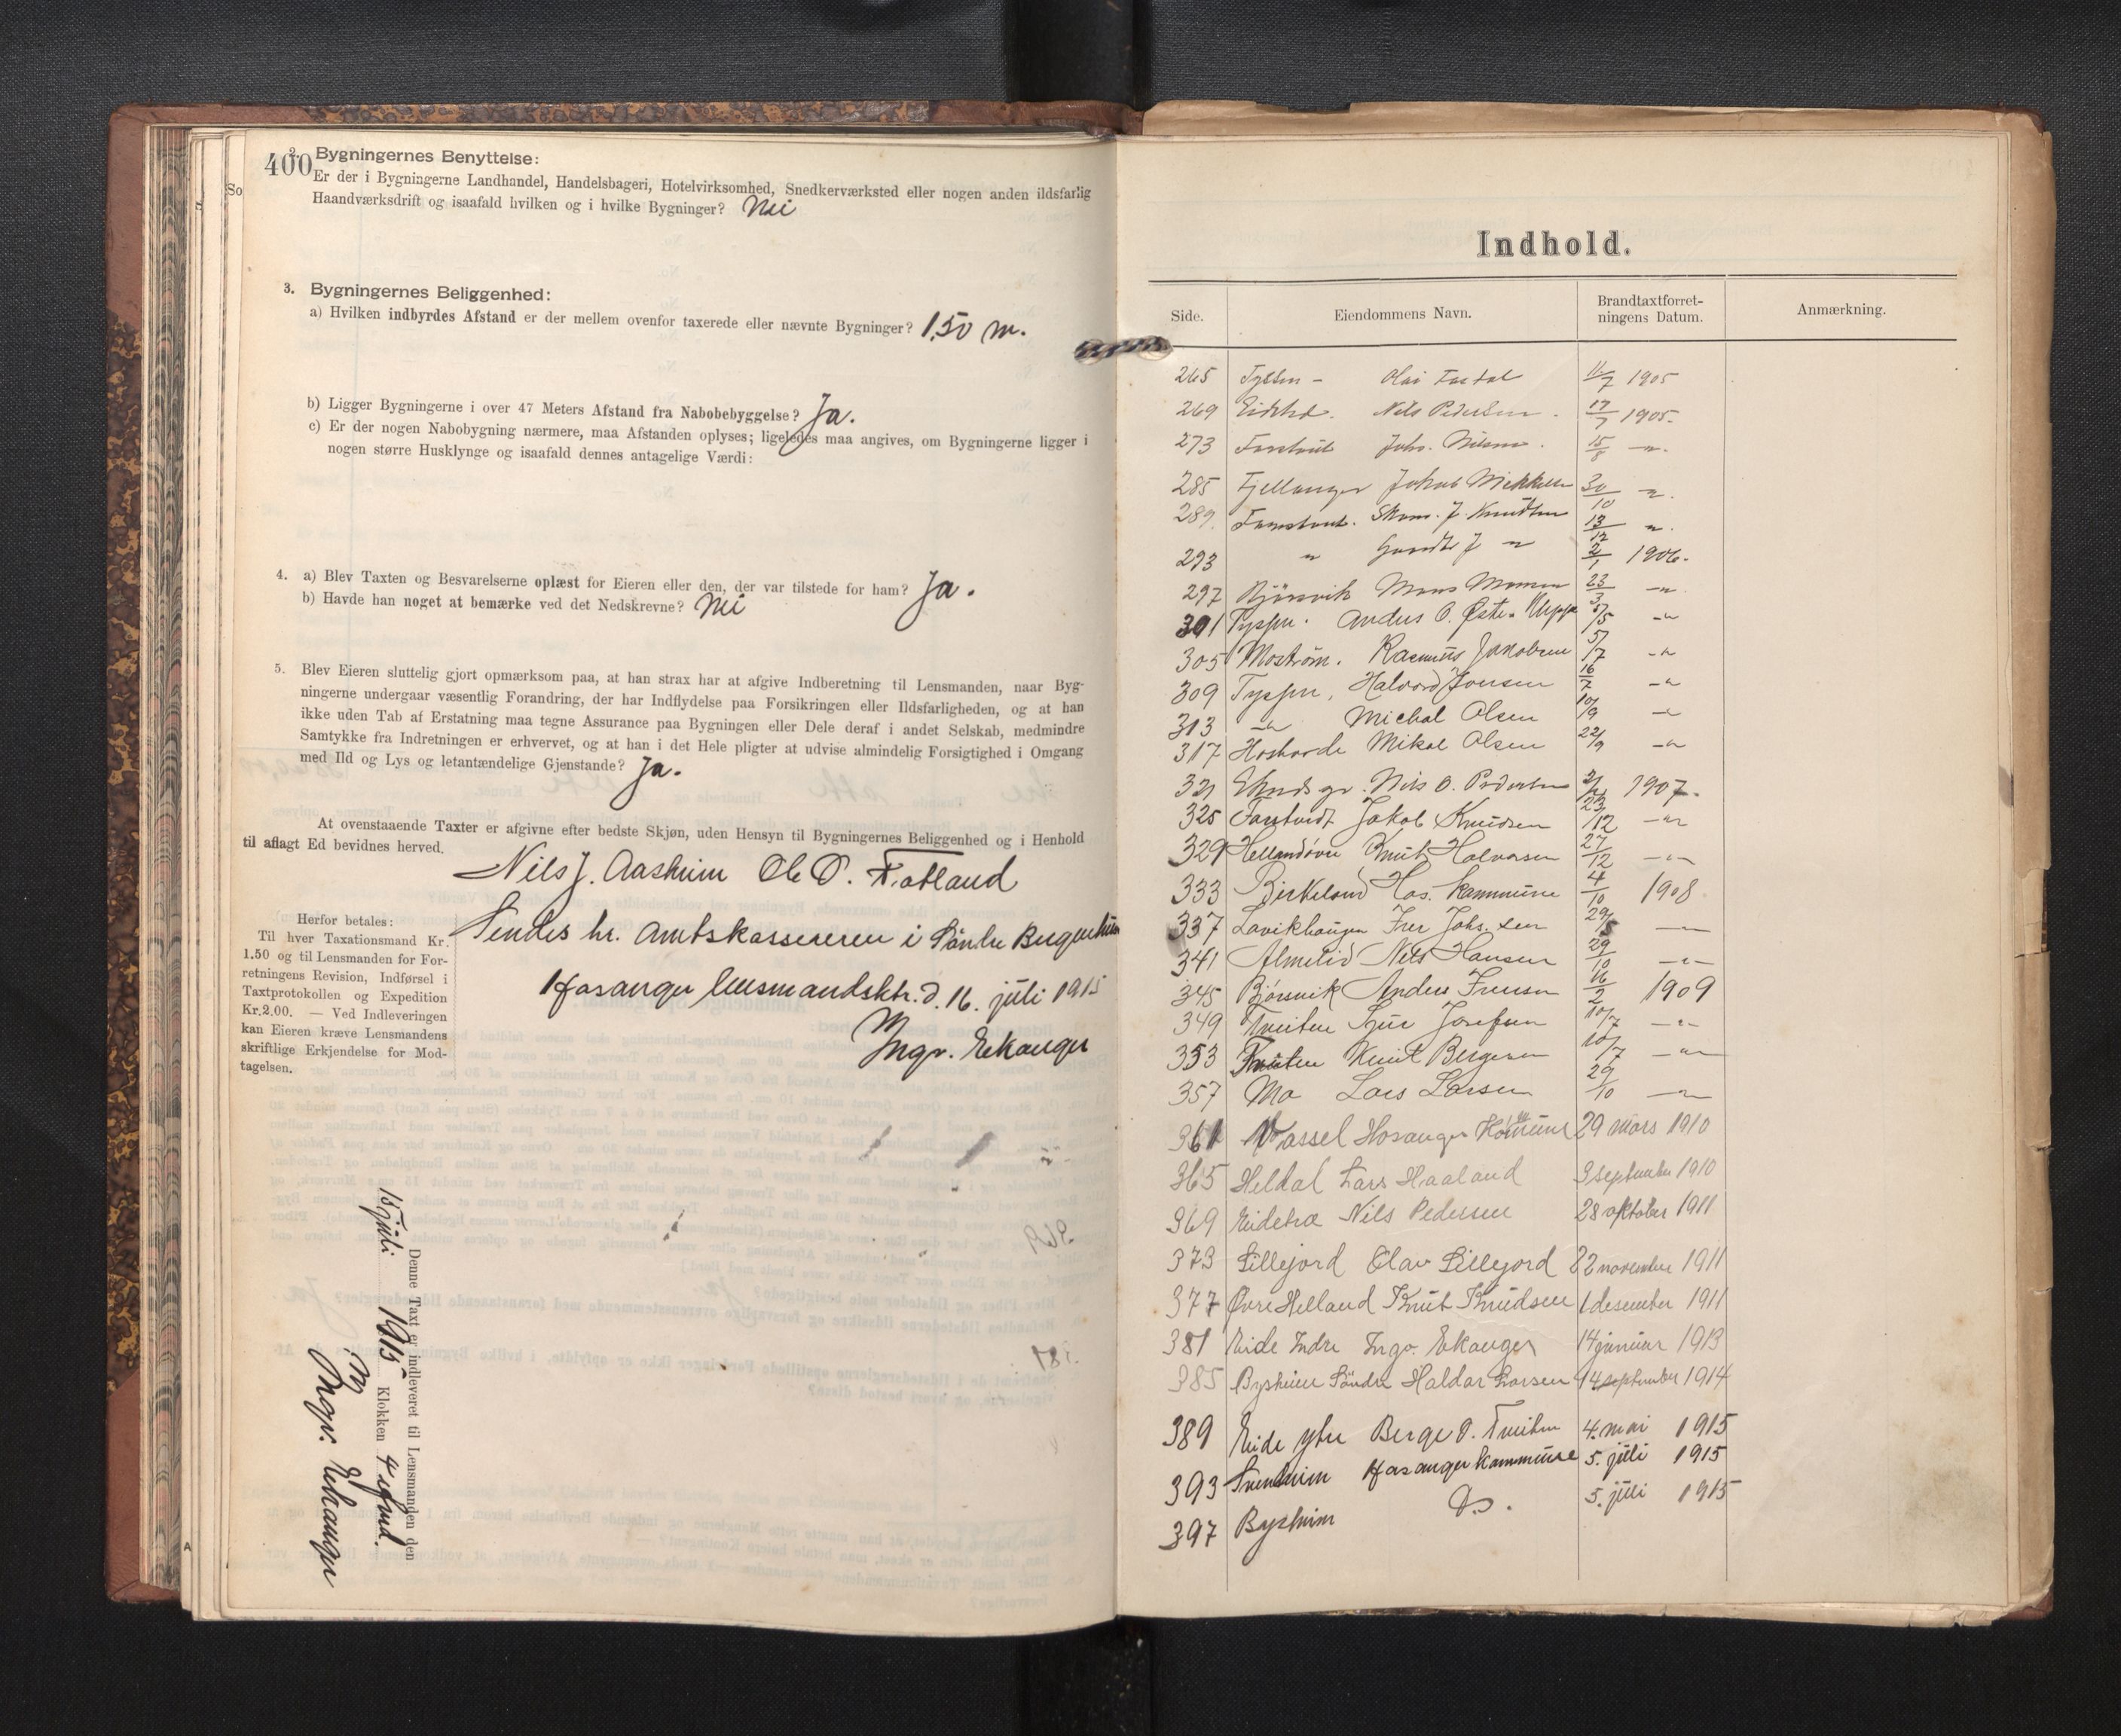 400
2. Bygningernes Benyttelse:
Er der i Bygningerne Landhandel, Handelsbageri, Hotelvirksomhed, Snedkerværksted eller nogen anden ildsfarlig
Haandværksdrift og isaafald hvilken og i hvilke Bygninger? Nei
3. Bygningernes Beliggenhed:
a) Hvilken indbyrdes Afstand er der mellem ovenfor taxerede eller nævnte Bygninger? 1,50 m.
b) Ligger Bygningerne i over 47 Meters Afstand fra Nabobebyggelse? Ja.
c) Er der nogen Nabobygning nærmere, maa Afstanden oplyses; ligeledes maa angives, om Bygningerne ligger i
nogen større Husklynge og isaafald dennes antagelige Værdi:
4. a) Blev Taxten og Besvarelserne oplæst for Eieren eller den, der var tilstede for ham? Ja.
b) Havde han noget at bemærke ved det Nedskrevne? Nei
5. Blev Eieren sluttelig gjort opmærksom paa, at han strax har at afgive Indberetning til Lensmanden, naar Byg-
ningerne undergaar væsentlig Forandring, der har Indflydelse paa Forsikringen eller Ildsfarligheden, og at han
ikke uden Tab af Erstatning maa tegne Assurance paa Bygningen eller Dele deraf i andet Selskab, medmindre
Samtykke fra Indretningen er erhvervet, og at han i det Hele pligter at udvise almindelig Forsigtighed i Omgang
med Ild og Lys og letantændelige Gjenstande? Ja.
At ovenstaaende Taxter er afgivne efter bedste Skjøn, uden Hensyn til Bygningernes Beliggenhed og i Henhold
til aflagt Ed bevidnes herved.
Nils J. Aasheim Ole O. Fotland
Sendes hr. Amtskassereren i Söndre Bergenhus
Hosanger lensmandsktr. d. 16. juli 1915
Ingv. Eekanger
Herfor betales:
Til hver Taxationsmand Kr.
1.50 og til Lensmanden for For-
retningens Revision, Indførsel i
Taxtprotokollen og Expedition
Kr. 2.00. — Ved Indleveringen
kan Eieren kræve Lensmandens
skriftlige Erkjendelse for Mod-
tagelsen.
Denne Taxt er indleveret til Lensmanden den
15 juli 1915 Klokken 4 efmd.
Ingv. Eekanger
Indhold.
Side. Eiendommens Navn. Brandtaxtforret-
ningens Datum. Anmærkning.
265 Olai 1905
269 Nils Pedersen. 17/7 1905.
273 Johs. Nilsen. 15/8 —"—
285 Fjellanger Jakob Mikkelsen 30/10 "
289. J. Knudsen 13/12 "
293 " J " 2/1 1906.
297 Bjørsvik Mons Monsen 23/3 —"—
301 Tyssen. Anders O. 5/5 —"—
305 Moström. Rasmus Jakobsen 5/7 —"—
309 Tyssen, Halvord Jonsen 16/7 —"—
313 —"— Michal Olsen 10/9 —"—
317 Mikal Olsen 22/9 —"—
321 Nils O. Pedersen 1907.
325 Jakob Knudsen 23/12 —"—
329 Helland övre Knut Halvorsen 27/12 —"—
333 Birkeland Hos. kommune 4/10 1908
337 Lavikhaugen Iver Johs.sen 29/5 —"—
341 Almelid Nils Hansen 29/10 —"—
345 Bjørsvik Anders Iversen 16/2 1909
349 Tveiten Josefsen 10/7 —"—
353 Tveiten Knut Bergesen 10/7 —"—
357 Mo Lars Larsen 29/10 —"—
361 Vassel Hosanger Kommune 29 mars 1910
365 Heldal Lars Haaland 3 september 1910
369 Eidetræ Nils Pedersen 28 oktober 1911
373 Lillejord Olav Lillejord 22 november 1911
377 Övre Helland Knut Knudsen 1 desember 1911
381 Eide Indre Ingv. Eekanger 14 januar 1913
385 Bysheim Söndre Haldor Larsen 14 september 1914
389 Eide ytre Berge O. Tveiten 4. mai 1915
393 Hosanger kommune 5. juli 1915
397 Bysheim Do. 5. juli 1915